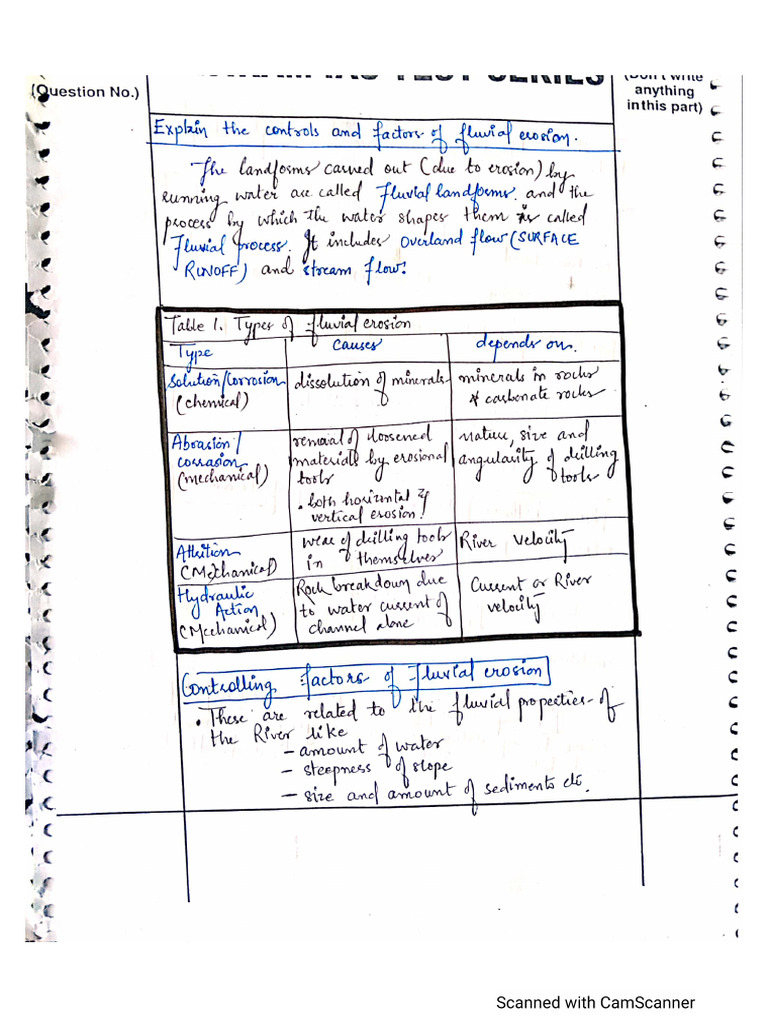 TEST SERIES
(Question No.)
(Don't write
anything
in this part)
Explain the controls and factors of fluvial erosion.
The landforms carved out (due to erosion) by
running water are called Fluvial landforms. and the
process by which the water shapes them is called
Fluvial process. It includes overland flow (SURFACE
RUNOFF) and stream flow.
Table 1. Types of fluvial erosion
Type causes depends on.
Solution/Corrosion (chemical)
dissolution of minerals
minerals in rocks
& carbonate rocks
Abrasion/
corrasion
(mechanical)
removal of loosened
materials by erosional
tools
• both horizontal &
vertical erosion!
nature, size and
angularity of drilling
tools
Attrition
(Mechanical)
wear of drilling tools
in themselves
River velocity
Hydraulic
Action
(Mechanical)
Rock breakdown due
to water current of
channel alone
Current or River
velocity
Controlling factors of Fluvial erosion
• These are related to the fluvial properties of
the River like
– amount of water
– steepness of slope
– size and amount of sediments etc.
Scanned with CamScanner